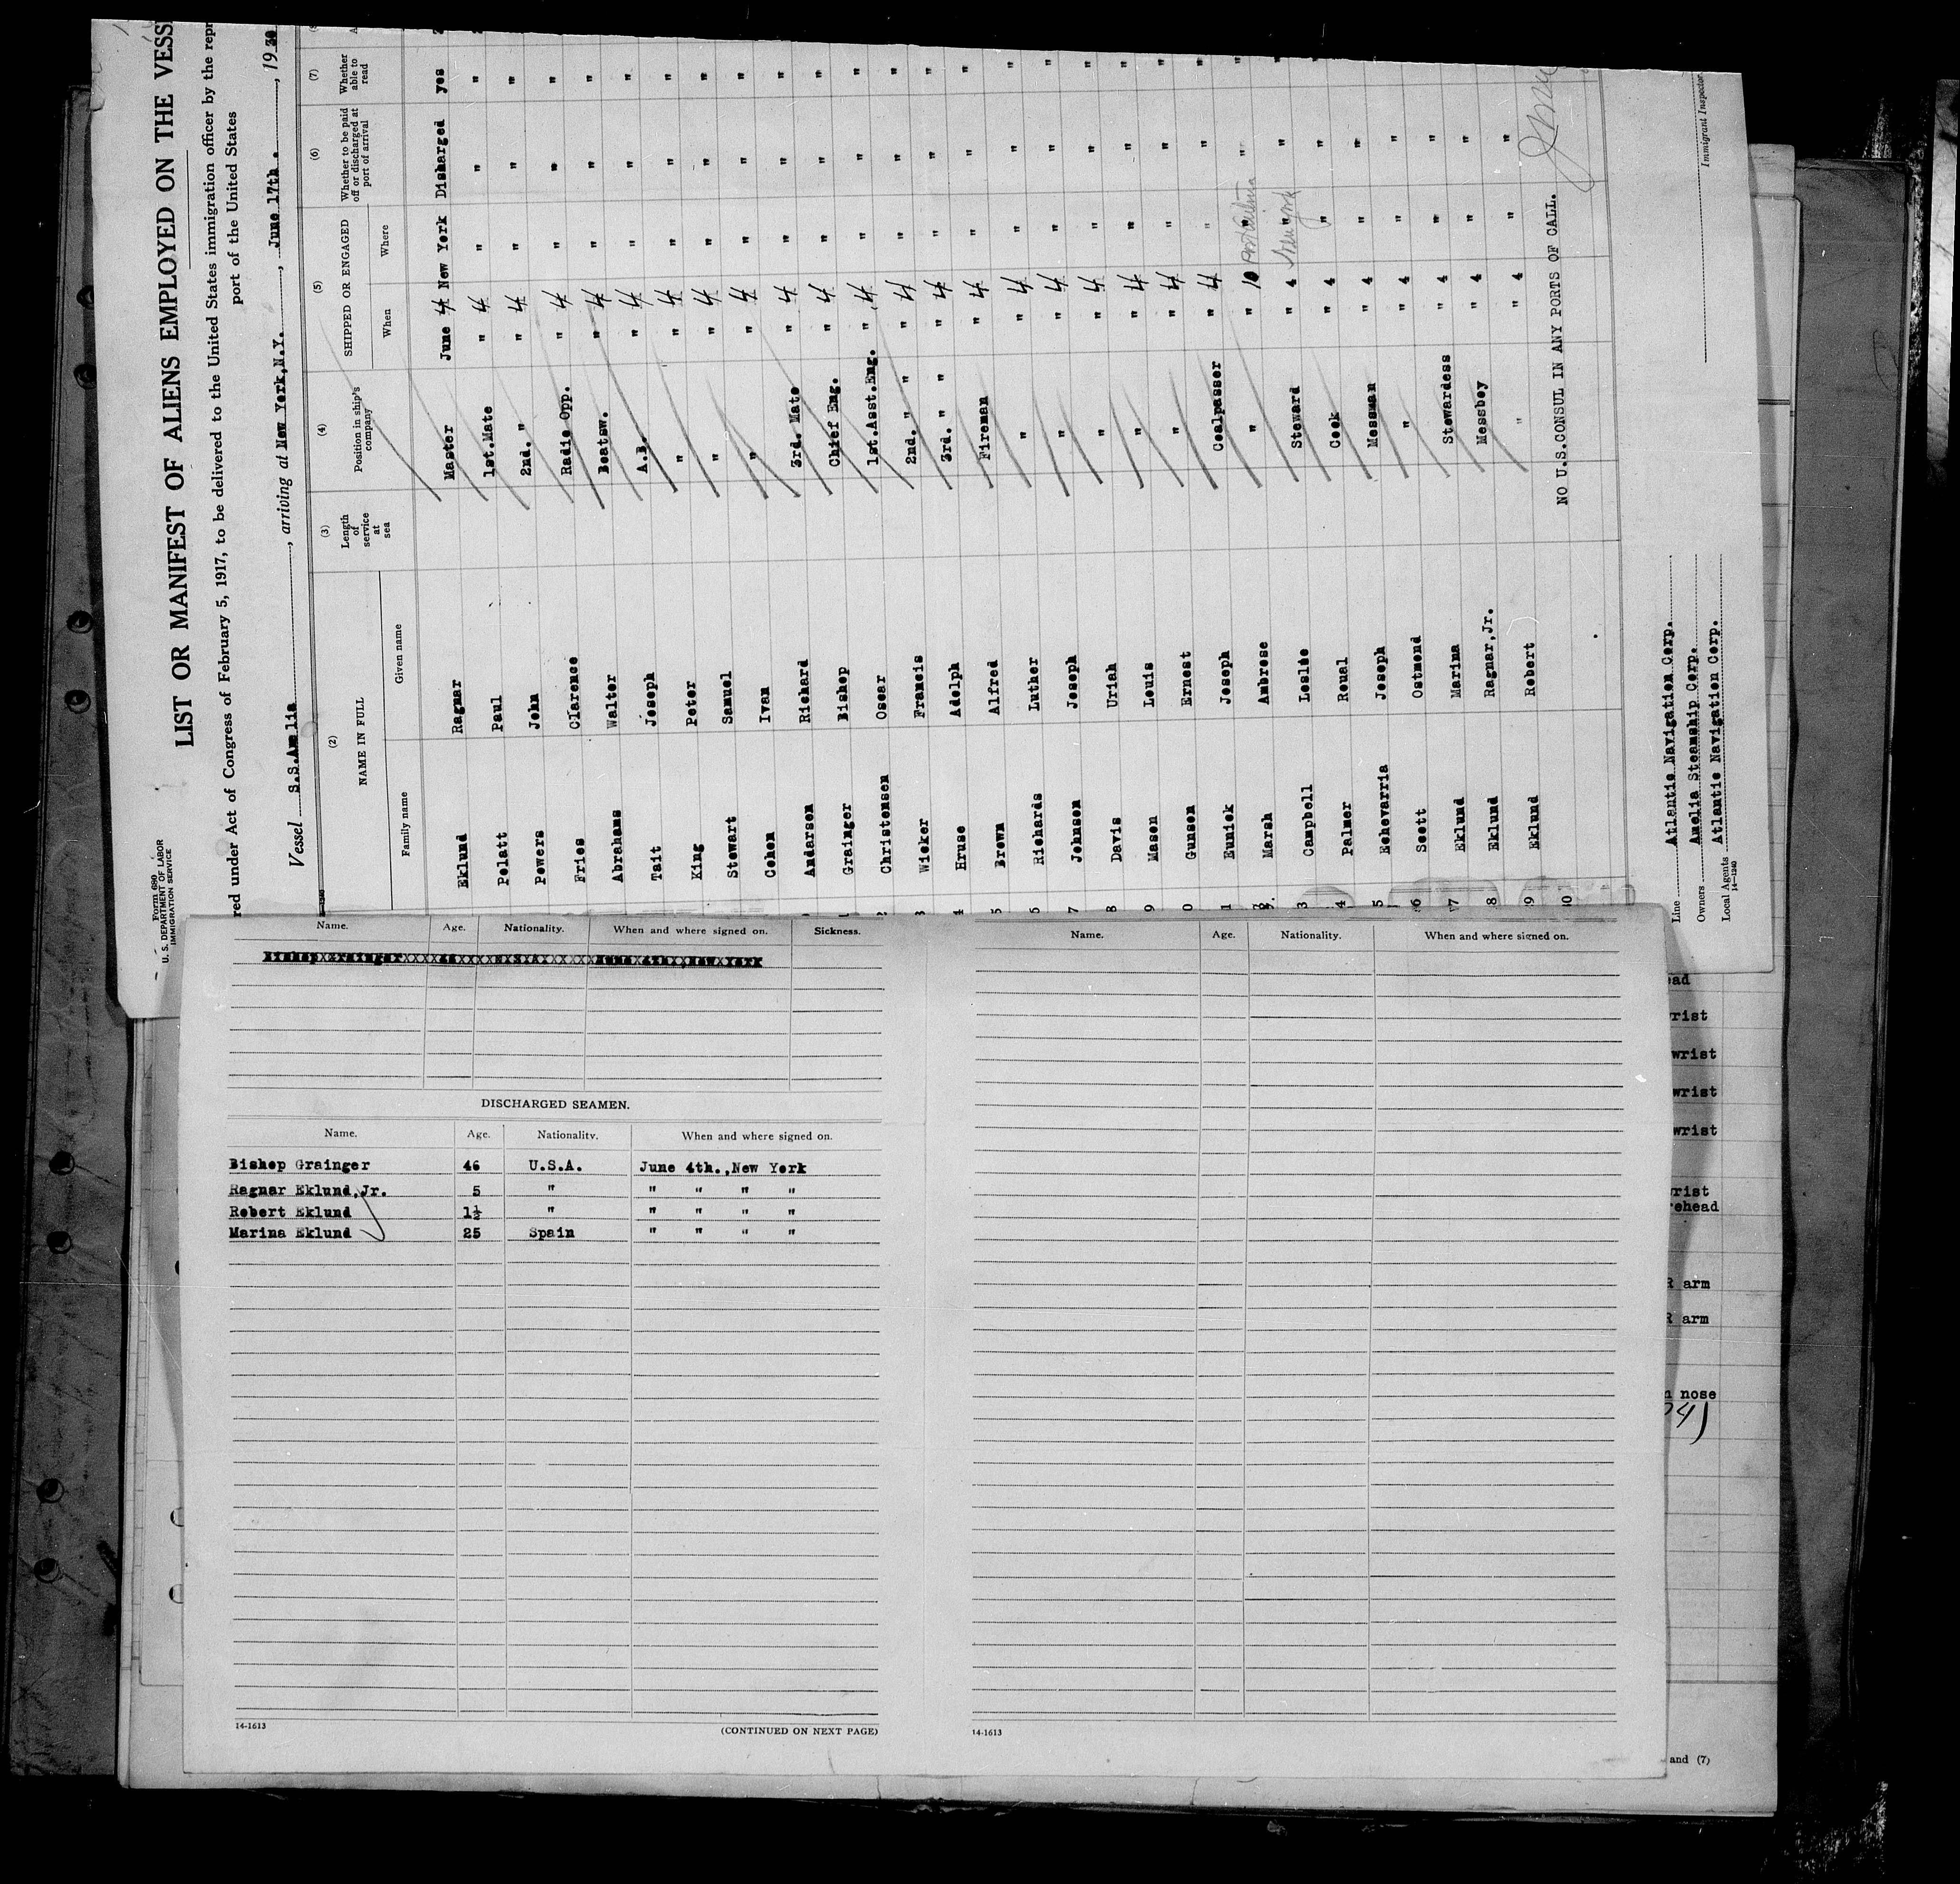 Form 680
U. S. DEPARTMENT OF LABOR
IMMIGRATION SERVICE
LIST OR MANIFEST OF ALIENS EMPLOYED ON THE
red under Act of Congress of February 5, 1917, to be delivered to the United States immigration officer by the
port of the United States
Vessel S.S.Amelia, arriving at New York,N.Y., June 17th., 19
(2) (3) (4) (5) (6) (7)
NAME IN FULL Length of service at sea Position in ship's company SHIPPED OR ENGAGED Whether to be paid off or discharged at port of arrival Whether able to read
Family name Given name When Where
Eklund Ragnar Master June 4 New York Discharged yes
Polatt Paul 1st.Mate " 4 " " "
Powers John 2nd. " " 4 " " "
Fries Clarence Radio Opp. " 4 " " "
Abrahams Walter Boatsw. " 4 " " "
Tait Joseph A.B. " 4 " " "
King Peter " " 4 " " "
Stewart Samuel " " 4 " " "
Cohen Ivan " " 4 " " "
Andersen Richard 3rd. Mate " 4 " " "
Grainger Bishop Chief Eng. " 4 " " "
Christensen Oscar 1st.Asst.Eng. " 4 " " "
Wicker Francis 2nd. " " " 4 " " "
Hruse Adolph 3rd. " " " 4 " " "
Brown Alfred Fireman " 4 " " "
Richards Luther " " 4 " " "
Johnson Joseph " " 4 " " "
Davis Uriah " " 4 " " "
Mason Louis " " 4 " " "
Gunson Ernest " " 4 " " "
Eunick Joseph Coalpasser " 4 " " "
Marsh Ambrose " " 10 " " "
Campbell Leslie Steward " 4 New York " " "
Palmer Roual Cook " 4 " " "
Echevarria Joseph Messman " 4 " "
Scott Ostmond " " 4 " "
Eklund Marina Stewardess " 4 " "
Eklund Ragnar,Jr. Messboy " 4 " "
Eklund Robert " " 4 " "
NO U.S.CONSUL IN ANY PORTS OF CALL.
Line Atlantic Navigation Corp.
Owners Amelia Steamship Corp.
Local Agents Atlantic Navigation Corp.
14-1240
Immigrant Inspector
Name. Age. Nationality. When and where signed on. Sickness.
Bishop Grainger 46 U.S.A. June 4th., New York
DISCHARGED SEAMEN.
Name. Age. Nationality. When and where signed on.
Bishop Grainger 46 U.S.A. June 4th.,New York
Ragnar Eklund,Jr. 5 " " " " "
Robert Eklund 1½ " " " " "
Marina Eklund 25 Spain " " " "
14-1613
(CONTINUED ON NEXT PAGE)
Name. Age. Nationality. When and where signed on.
14-1613
ead
wrist
wrist
wrist
wrist
wrist
rehead
R arm
R arm
n nose
and (7)